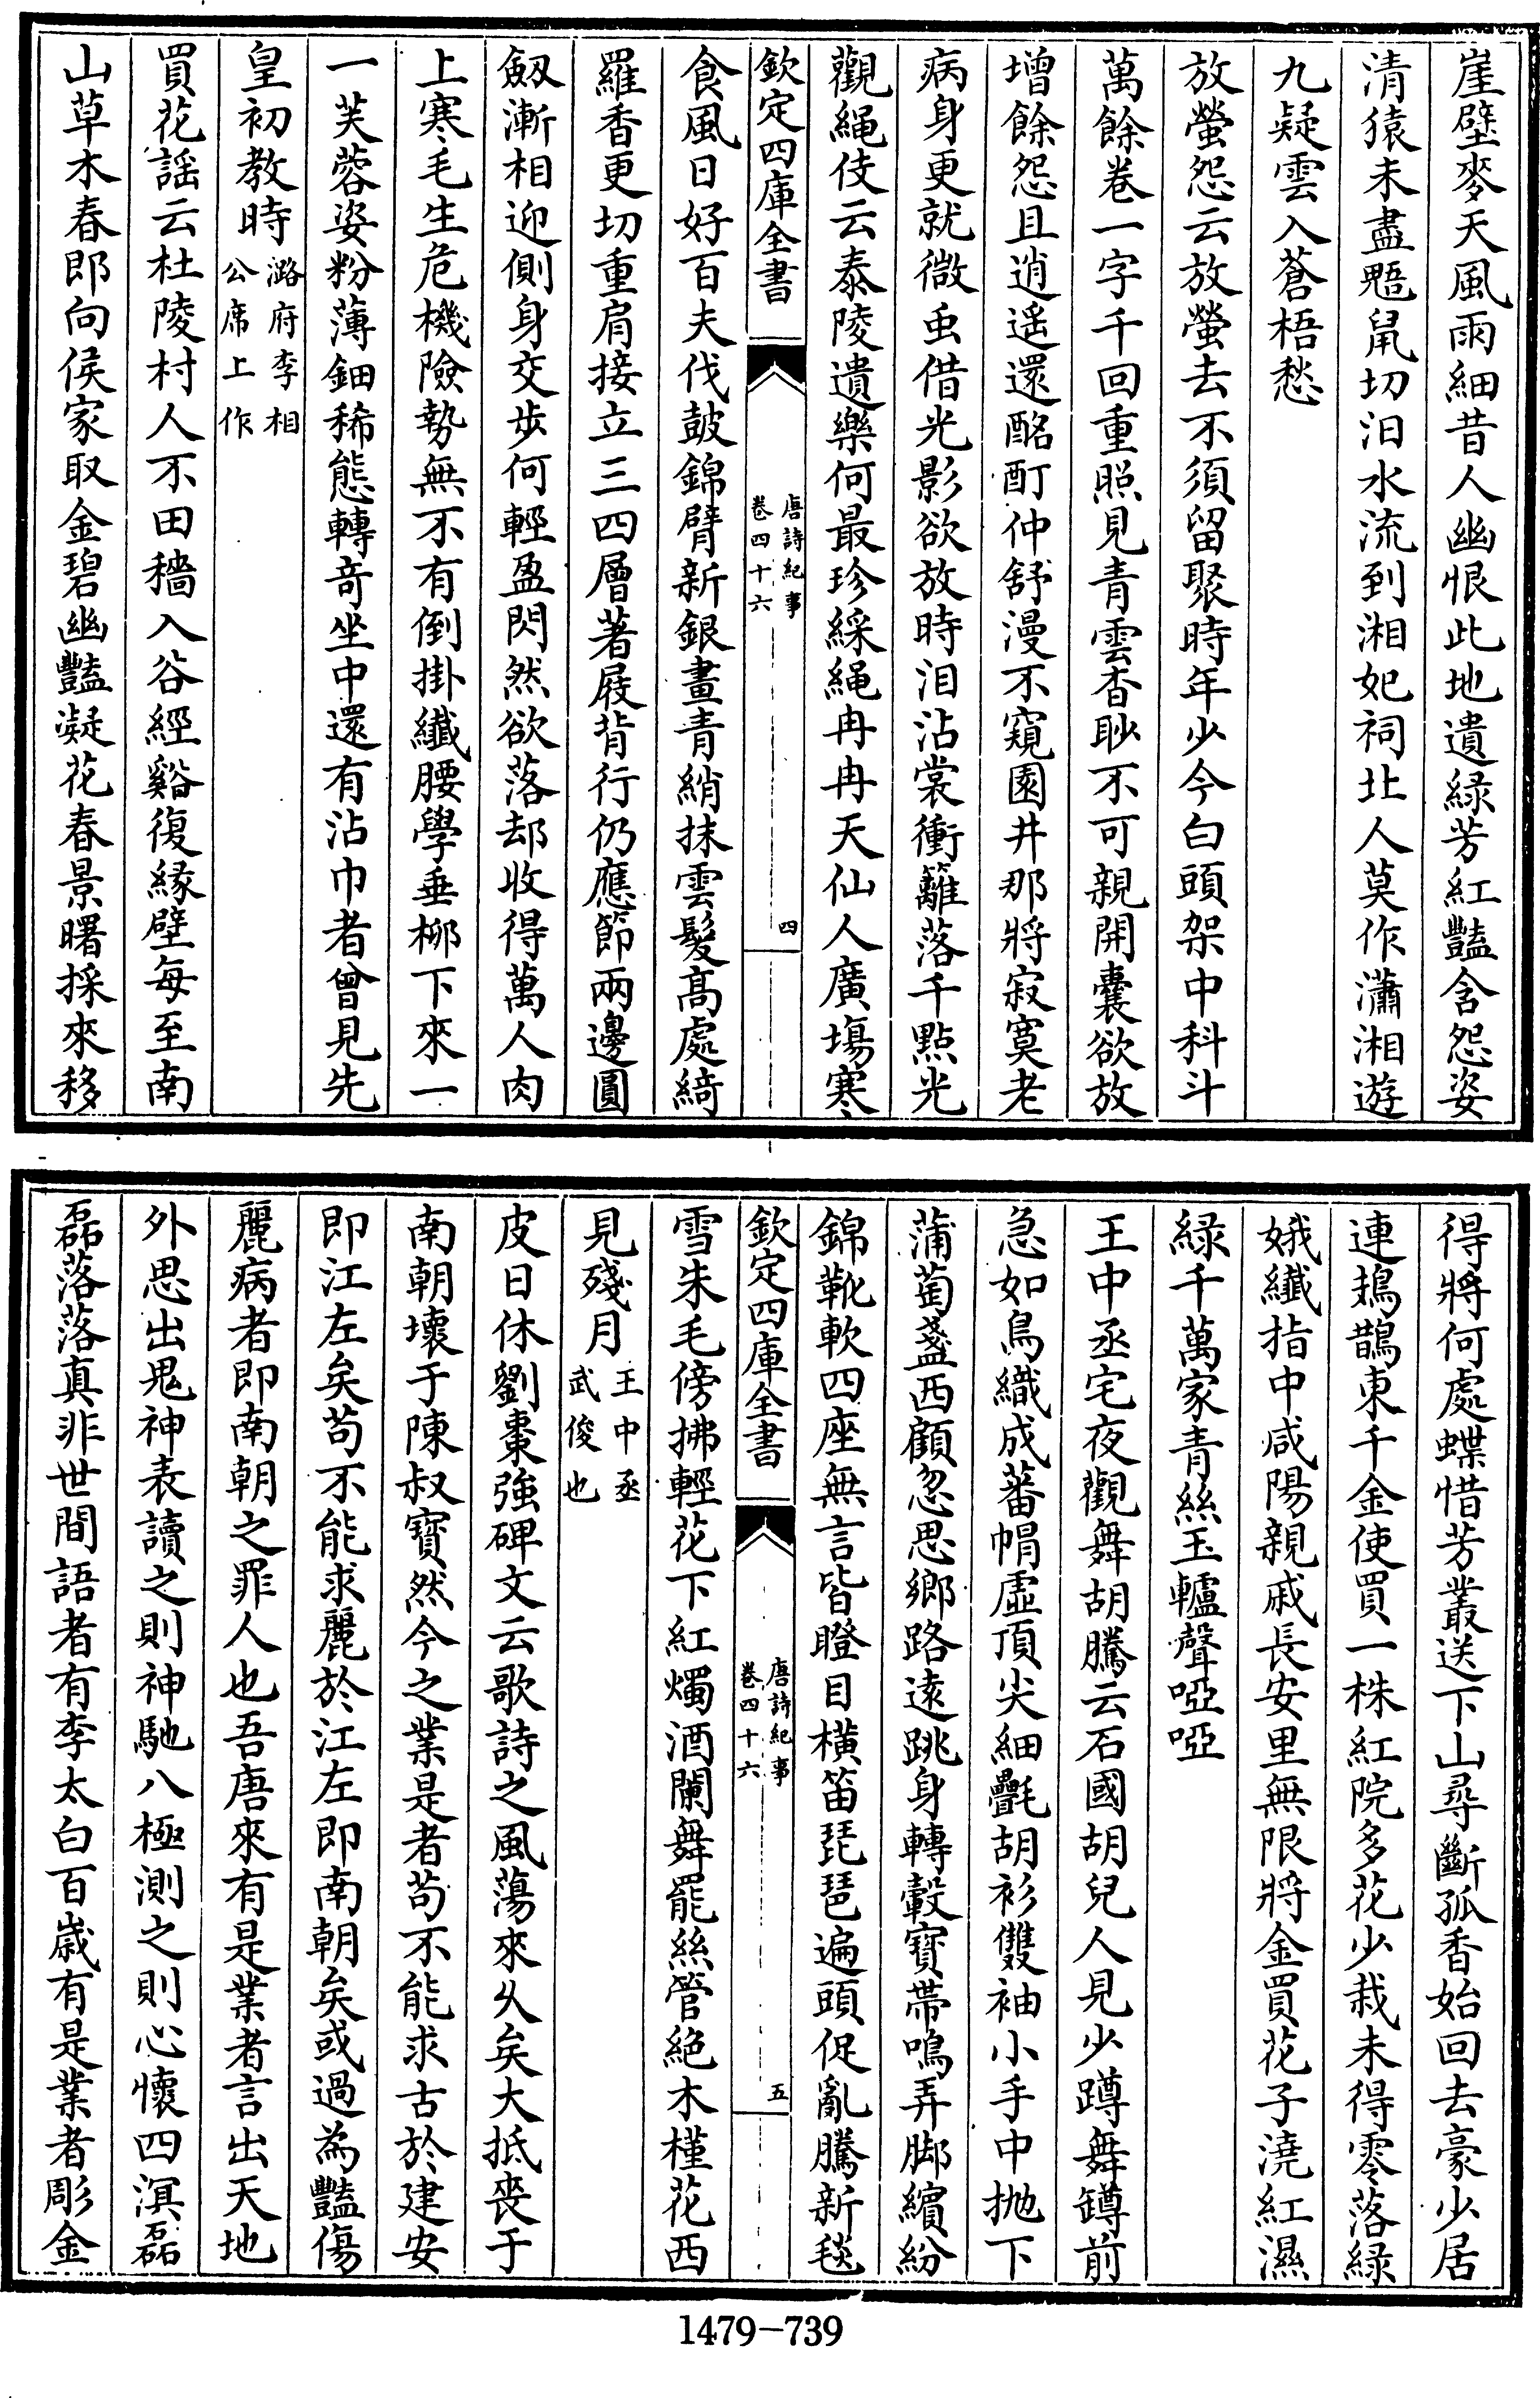 崖壁麥天風雨細昔人幽恨此地遺緑芳紅豔含怨姿
清猿未盡鼯鼠切汨水流到湘妃祠北人莫作瀟湘遊
九疑雲入蒼梧愁
放螢怨云放螢去不須留聚時年少今白頭架中科斗
萬餘卷一字千回重照見青雲杳眇不可親開囊欲放
增餘怨且逍遥還酩酊仲舒漫不窺園井那將寂寞老
病身更就微蟲借光影欲放時泪沾裳衝籬落千點光
觀繩伎云泰陵遺樂何最珍綵繩冉冉天仙人廣塲寒
欽定四庫全書
唐詩紀事
卷四十六
四
食風日好百夫伐鼓錦臂新銀畫青綃抹雲髮髙處綺
羅香更切重肩接立三四層著屐背行仍應節兩邊圓
劔漸相迎側身交步何輕盈閃然欲落却收得萬人肉
上寒毛生危機險勢無不有倒掛纖腰學垂栁下來一
一芙蓉姿粉薄鈿稀態轉竒坐中還有沾巾者曾見先
皇初教時
潞府李相
公席上作
買花謡云杜陵村人不田穡入谷經谿復縁壁每至南
山草木春即向侯家取金碧幽豔凝花春景曙採來移
得將何處蝶惜芳叢送下山尋斷孤香始回去豪少居
連鳷鵲東千金使買一株紅院多花少栽未得零落緑
娥纖指中咸陽親戚長安里無限將金買花子澆紅濕
緑千萬家青絲玉轤聲啞啞
王中丞宅夜觀舞胡騰云石國胡兒人見少蹲舞罇前
急如鳥織成蕃帽虚頂尖細㲲胡衫雙袖小手中抛下
蒲萄盞西顧忽思鄉路逺跳身轉轂寳帶鳴弄脚繽紛
錦靴軟四座無言皆瞪目横笛琵琶遍頭促亂騰新毯
欽定四庫全書
唐詩紀事
卷四十六
五
雪朱毛傍拂輕花下紅燭酒闌舞罷絲管絶木槿花西
見殘月
王中丞
武俊也
皮日休劉棗強碑文云歌詩之風蕩來乆矣大抵喪于
南朝壞于陳叔寳然今之業是者苟不能求古於建安
即江左矣苟不能求麗於江左即南朝矣或過為豔傷
麗病者即南朝之罪人也吾唐來有是業者言出天地
外思出鬼神表讀之則神馳八極測之則心懷四溟磊
磊落落真非世間語者有李太白百歳有是業者彫金
1479-739